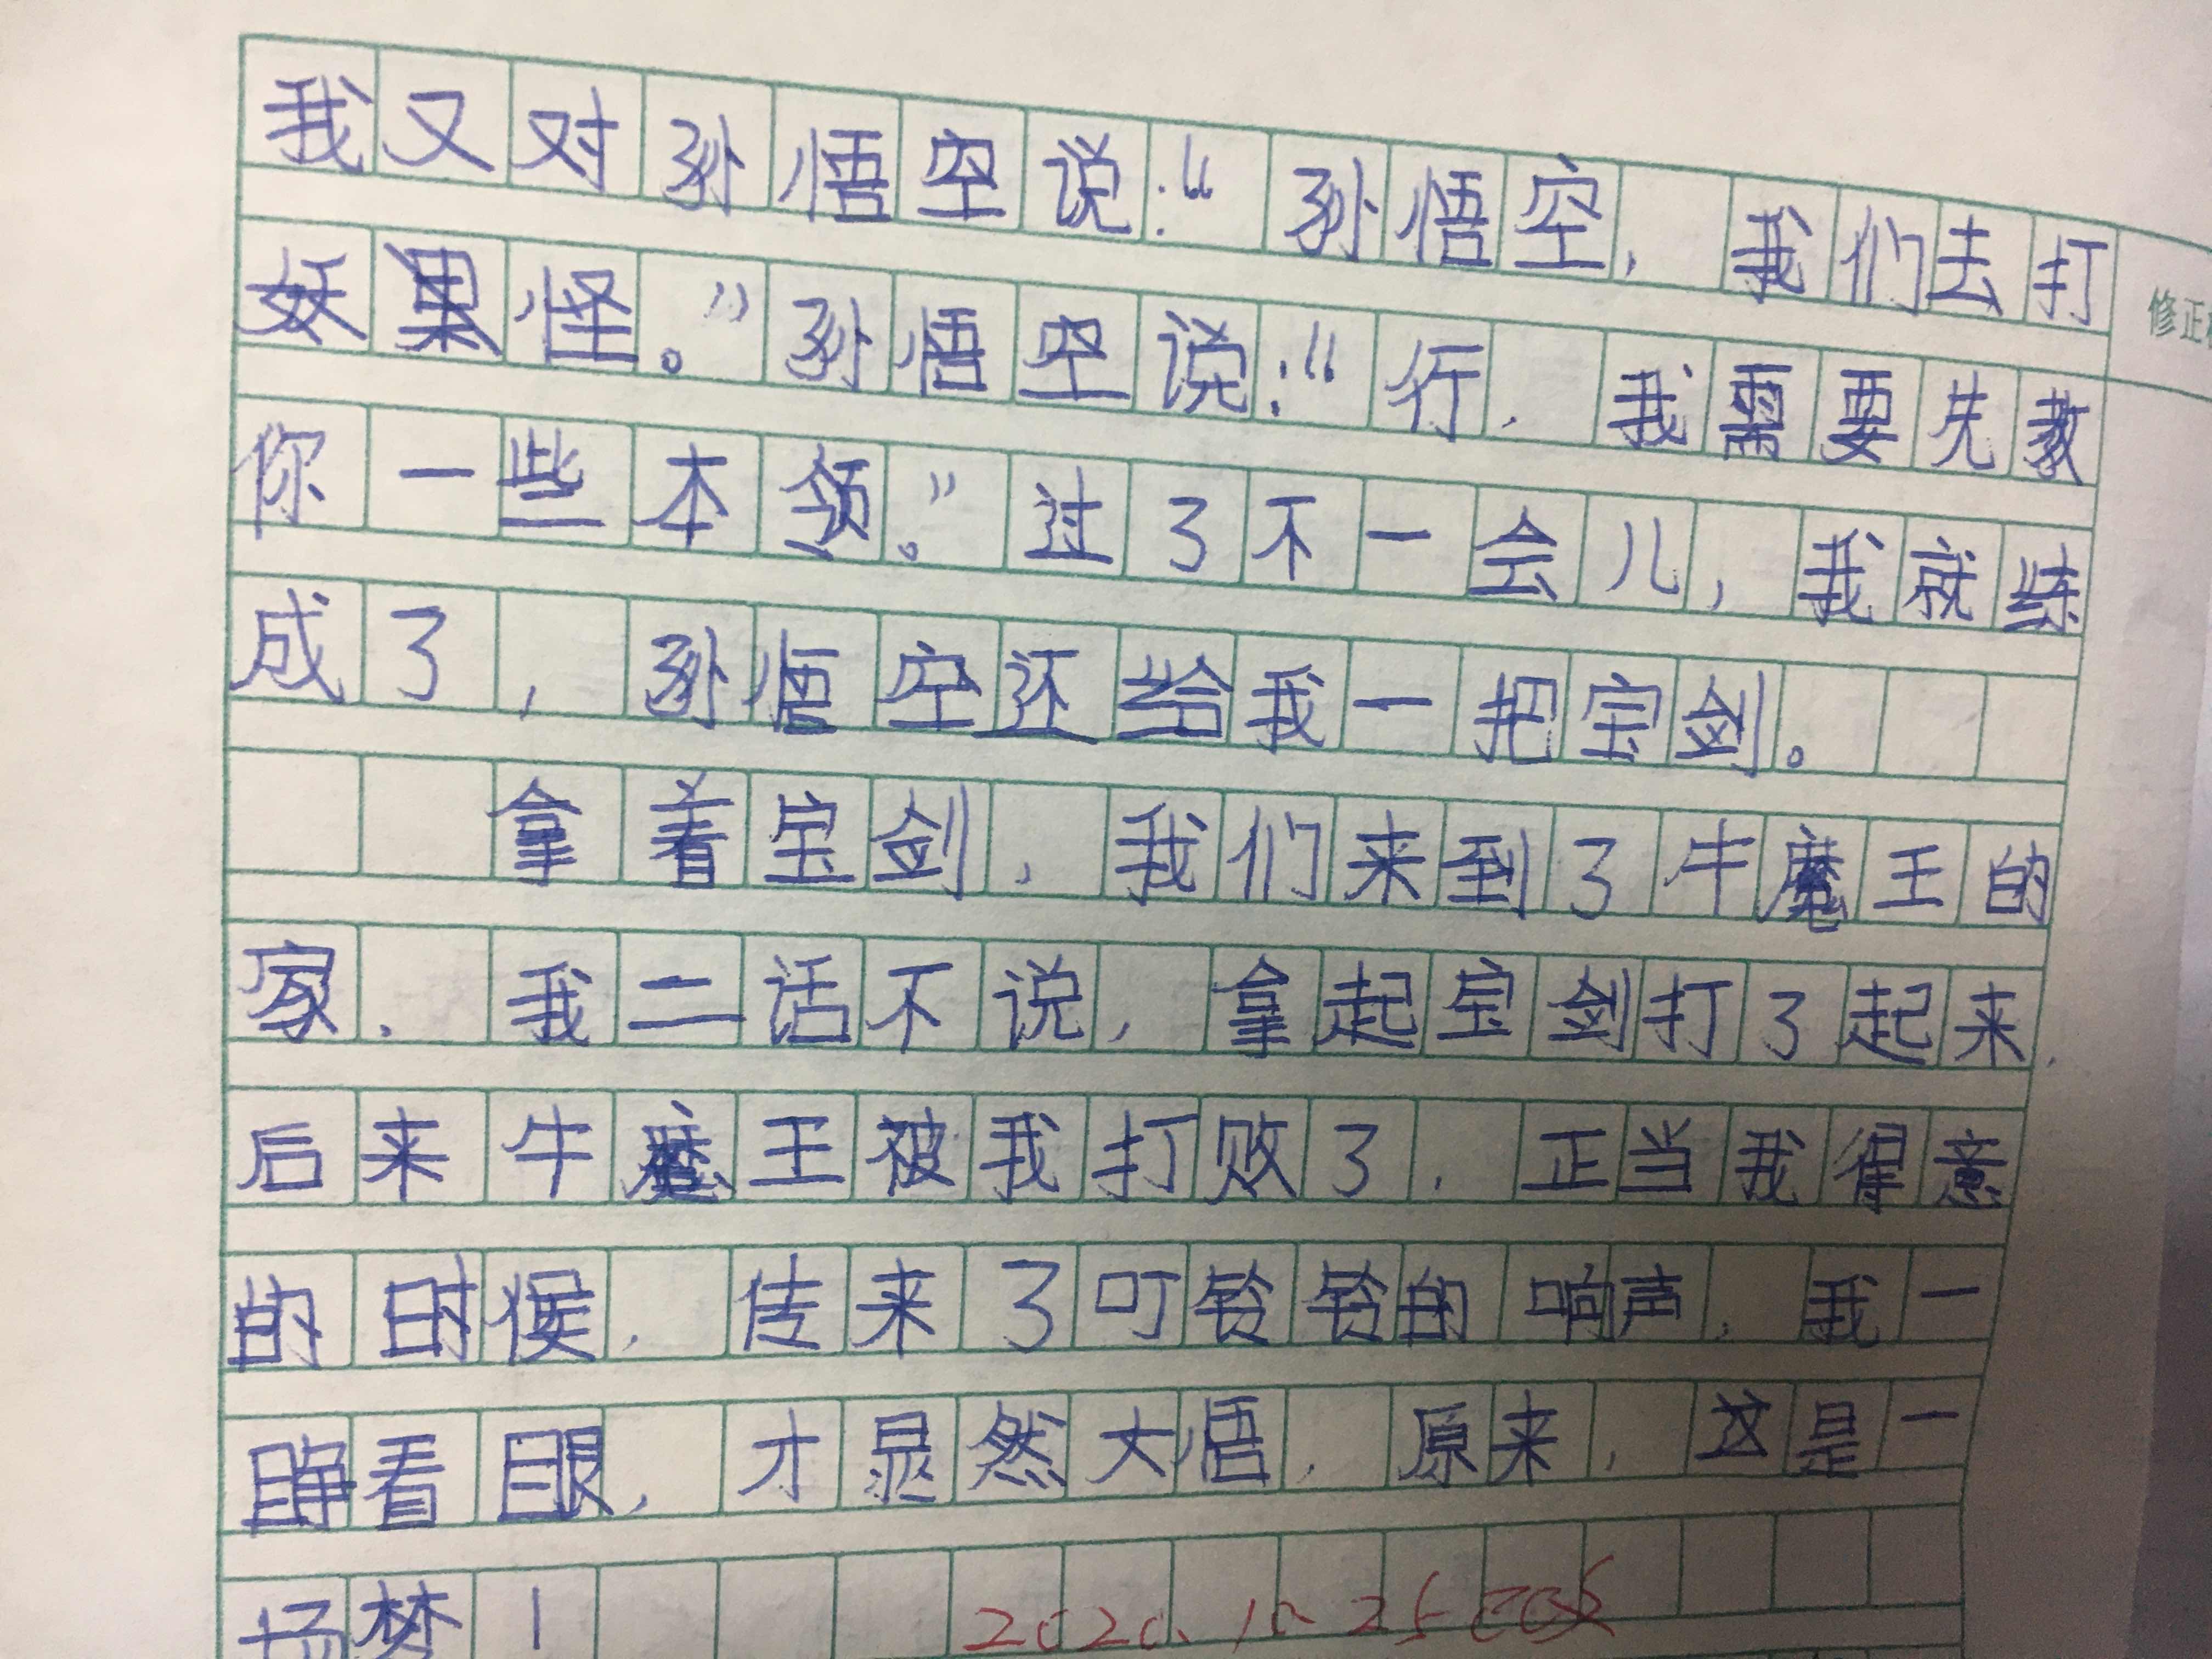 我又对孙悟空说:“孙悟空,我们去打
修正
妖怪。”孙悟空说:“行,我需要先教
你一些本领。”过了不一会儿,我就练
成了,孙悟空还给我一把宝剑。
拿着宝剑,我们来到了牛魔王的
家.我二话不说,拿起宝剑打了起来,
后来牛魔王被我打败了.正当我得意
的时候,传来了叮铃铃的响声,我一
睁看眼,才显然大悟,原来,这是一
场梦!
2020.10.25